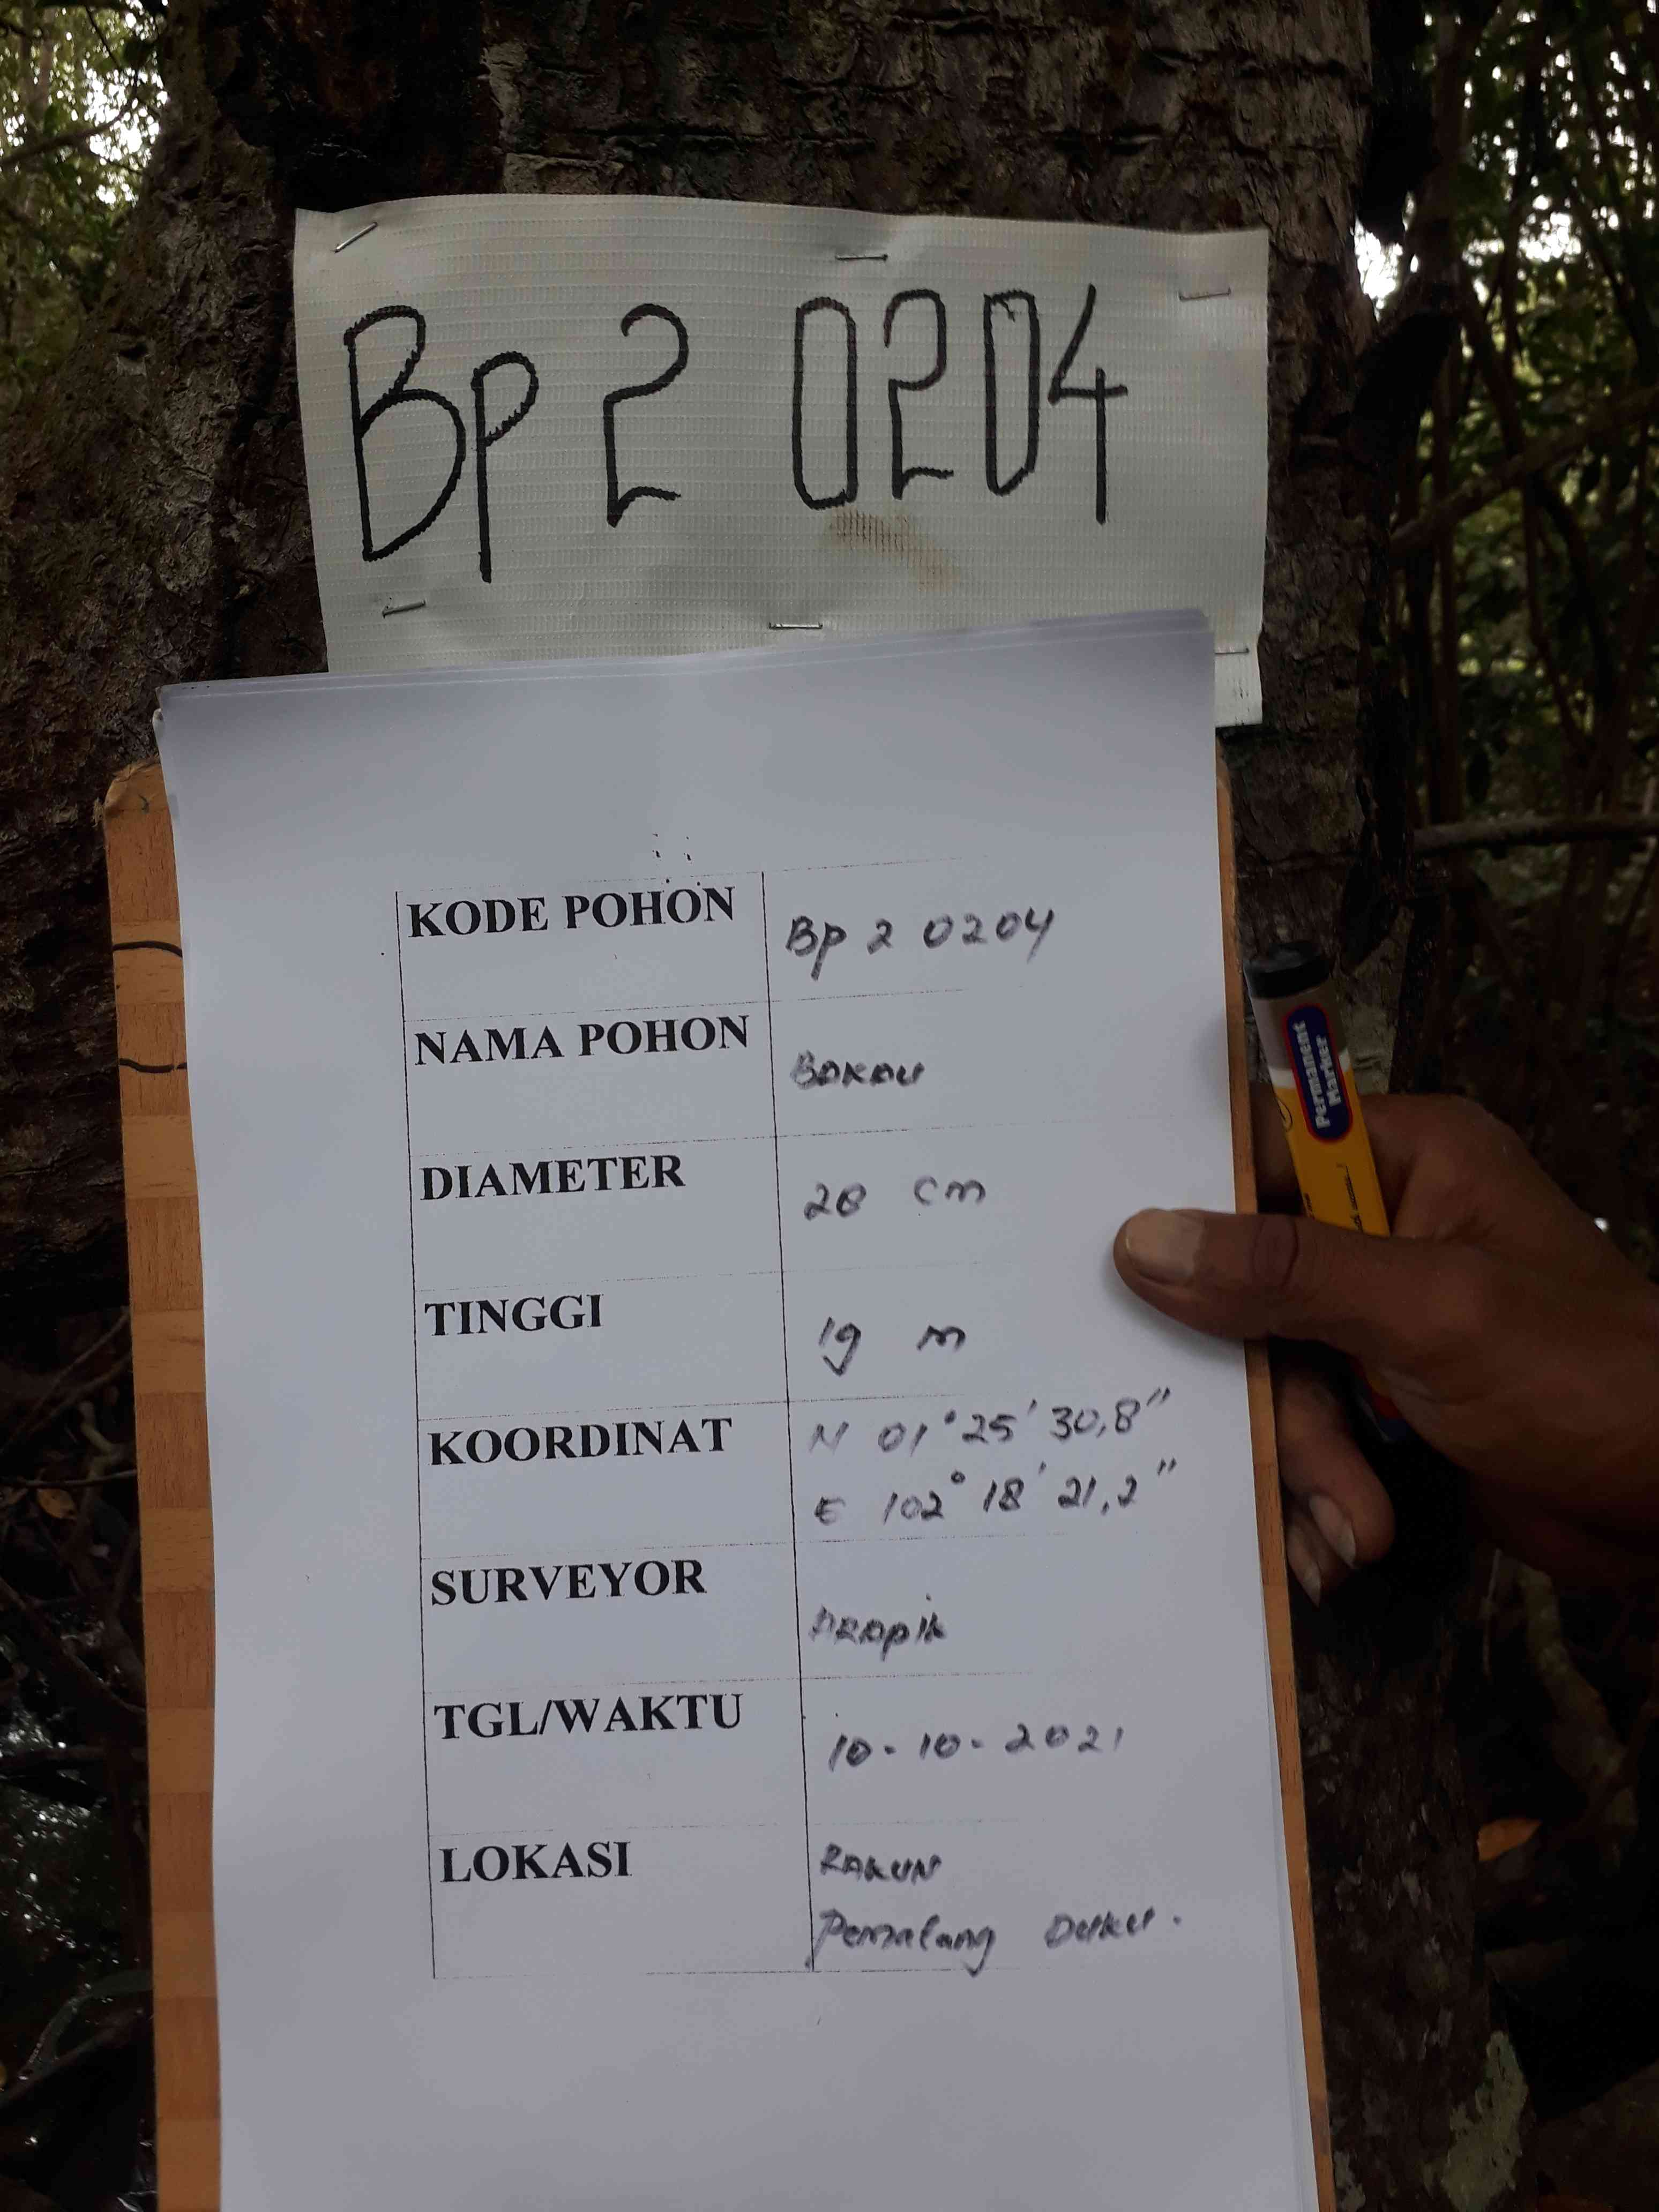 Bp 2 0204
KODE POHON
Bp 2 0204
NAMA POHON
BAKAU
DIAMETER
28 cm
TINGGI
19 m
KOORDINAT
N 01° 25' 30,8"
E 102° 18' 21,2"
SURVEYOR
ARApik
TGL/WAKTU
10-10-2021
LOKASI
RAKUN
Pematang Duku.
Permanent
Marker